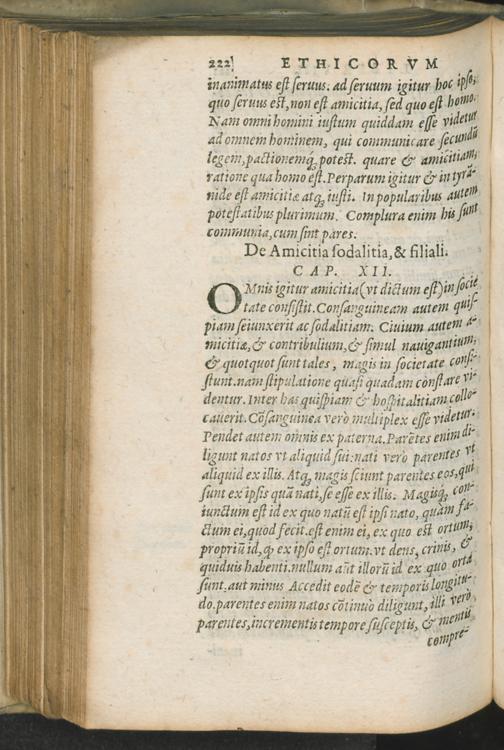 222 ETHICORVM
inanimatus est seruus. ad seruum igitur hoc ipso,
quo seruus est, non est amicitia, sed quo est homo.
Nam omni homini iustum quiddam esse videtur
ad omnem hominem, qui communicare secundū
legem, pactionemq́; potest. quare & amicitiam,
ratione qua homo est. Perparum igitur & in tyrā-
nide est amicitiæ atq; iusti. In popularibus autem
potestatibus plurimum. Complura enim his sunt
communia, cum sint pares.
De Amicitia sodalitia, & filiali.
CAP. XII.
OMnis igitur amicitia (vt dictum est) in socie
tate consistit. Consanguineam autem quis-
piam seiunxerit ac sodalitiam. Ciuium autem a-
micitiæ, & contribulium, & simul nauigantium,
& quotquot sunt tales, magis in societate consi-
stunt. nam stipulatione quasi quadam constare vi-
dentur. Inter has quispiam & hospitalitiam collo-
cauerit. Cōsanguinea verò multiplex esse videtur.
Pendet autem omnis ex paterna. Parētes enim di-
ligunt natos vt aliquid sui: nati verò parentes vt
aliquid ex illis. Atq; magis sciunt parentes eos, qui
sunt ex ipsis quā nati, se esse ex illis. Magisq; con-
iunctum est id ex quo natū est ipsi nato, quàm fa-
ctum ei, quod fecit. est enim ei, ex quo est ortum,
propriū id, qp ex ipso est ortum. vt dens, crinis, &
quiduis habenti. nullum aūt illorū id ex quo orta
sunt. aut minus Accedit eodē & temporis longitu-
do. parentes enim natos cōtinuò diligunt, illi verò
parentes, incrementis tempore susceptis, & mentis
compre-